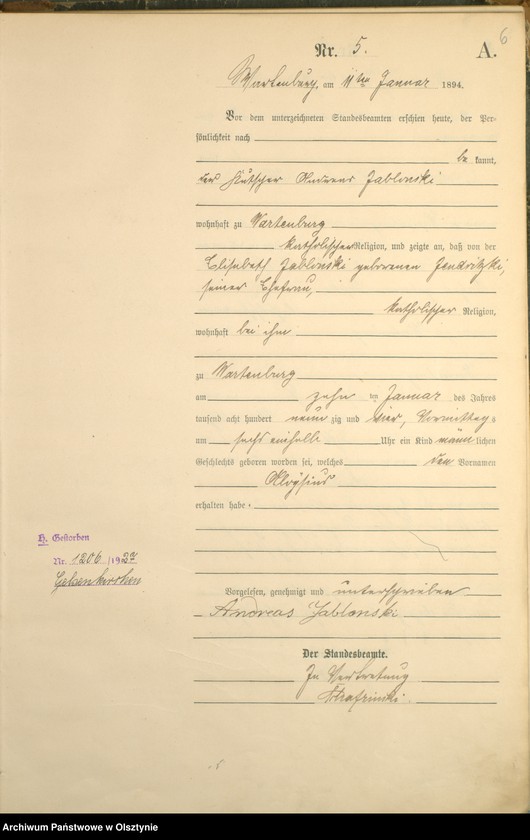 6
Nr. 5.
A.
Wartenburg, am 11ten Januar 1894.
Vor dem unterzeichneten Standesbeamten erschien heute, der Per-
sönlichkeit nach
be kannt,
der Kutscher Andreas Jablonski
wohnhaft zu Wartenburg
katholischer Religion, und zeigte an, daß von der
Elisabeth Jablonski geborenen
seiner Ehefrau,
katholischer Religion,
wohnhaft bei ihm
zu Wartenburg
am zehn ten Januar des Jahres
tausend acht hundert neun zig und vier, Vormittags
um sechs einhalb Uhr ein Kind männ lichen
Geschlechts geboren worden sei, welches den Vornamen
Aloysius
erhalten habe.
H. Gestorben
Nr. 1206 /1927
Gelsenkirchen
Vorgelesen, genehmigt und unterschrieben
Andreas Jablonski
Der Standesbeamte.
In Vertretung
Archiwum Państwowe w Olsztynie